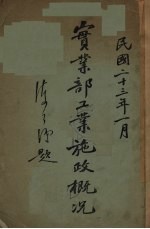 民國二十三年一月
實業部工業施政概況
題